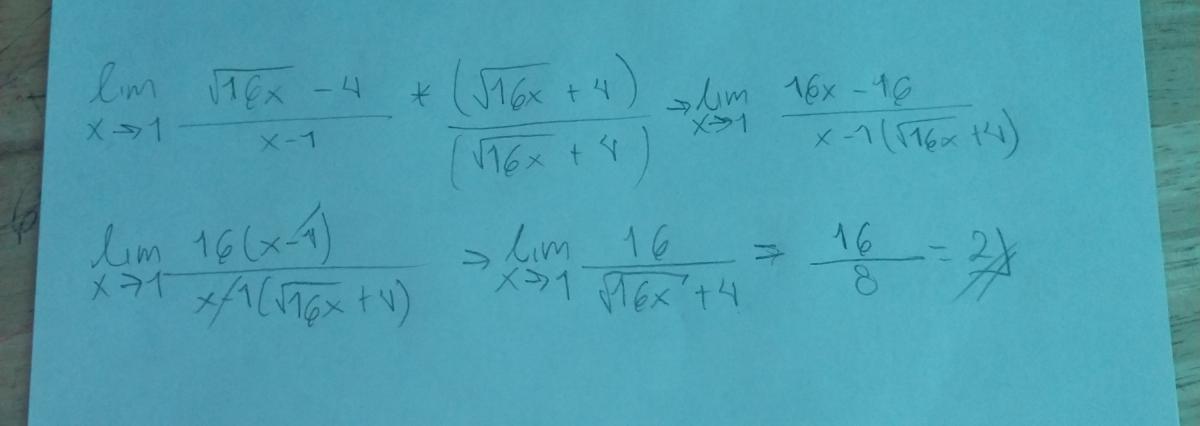 lim x→1 (√16x - 4)/(x-1) * (√16x + 4)/(√16x + 4) ⇒ lim x→1 (16x - 16)/(x-1(√16x + 4))
lim x→1 16(x-1)/(x-1(√16x + 4)) ⇒ lim x→1 16/(√16x + 4) ⇒ 16/8 = 2//